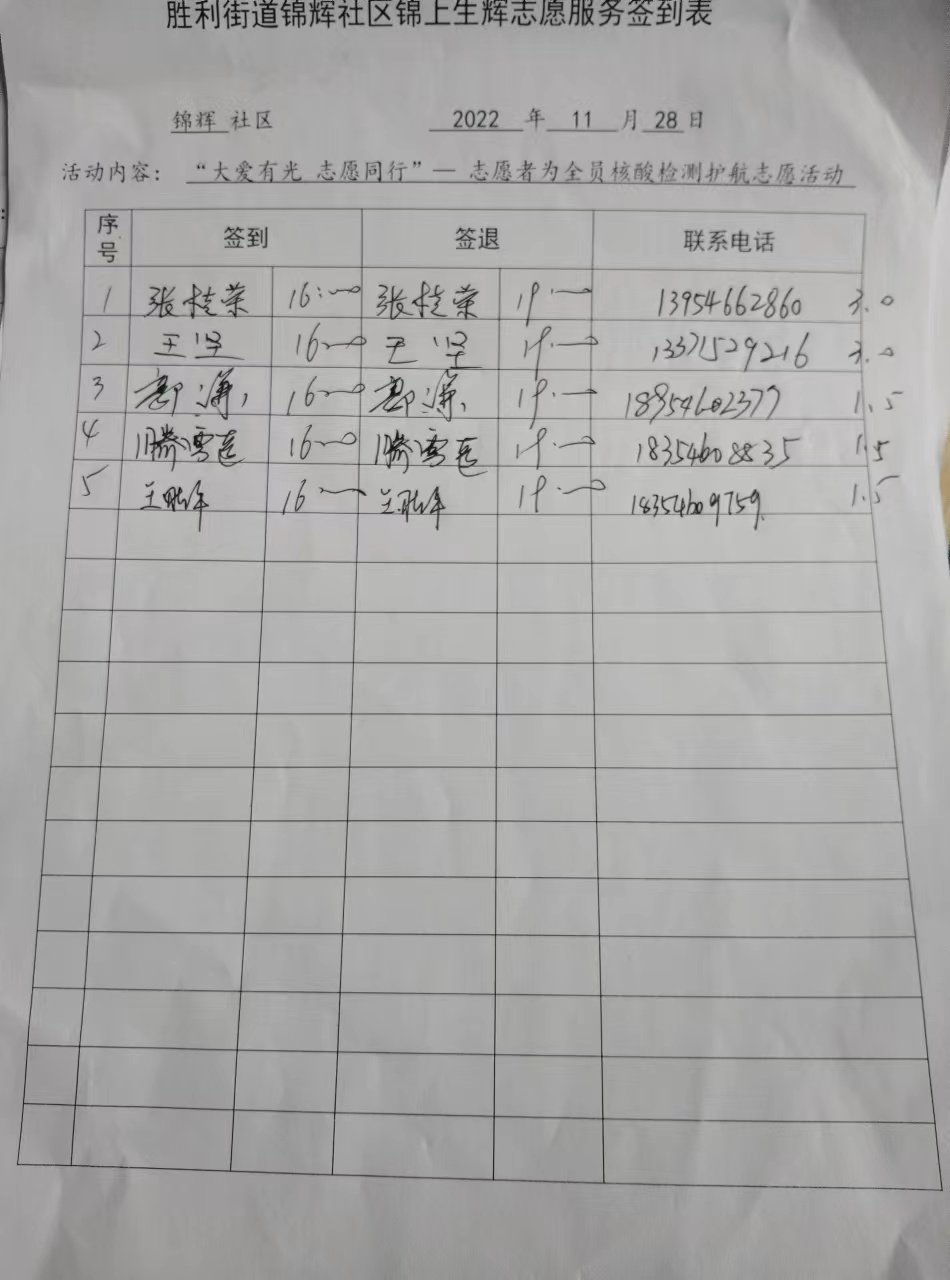 胜利街道锦辉社区锦上生辉志愿服务签到表
锦辉 社区 2022 年 11 月 28 日
活动内容： “大爱有光 志愿同行”— 志愿者为全员核酸检测护航志愿活动
序号 签到 签退 联系电话
1 张桂荣 16:00 张桂荣 19:00 13954662860 3.0
2 王坚 16:00 王坚 19:00 13371529216 3.0
3 16:00 19:00 18954602377 1.5
4 滕雪莲 16:00 滕雪莲 19:00 18354608835 1.5
5 16:00 19:00 18354609759 1.5